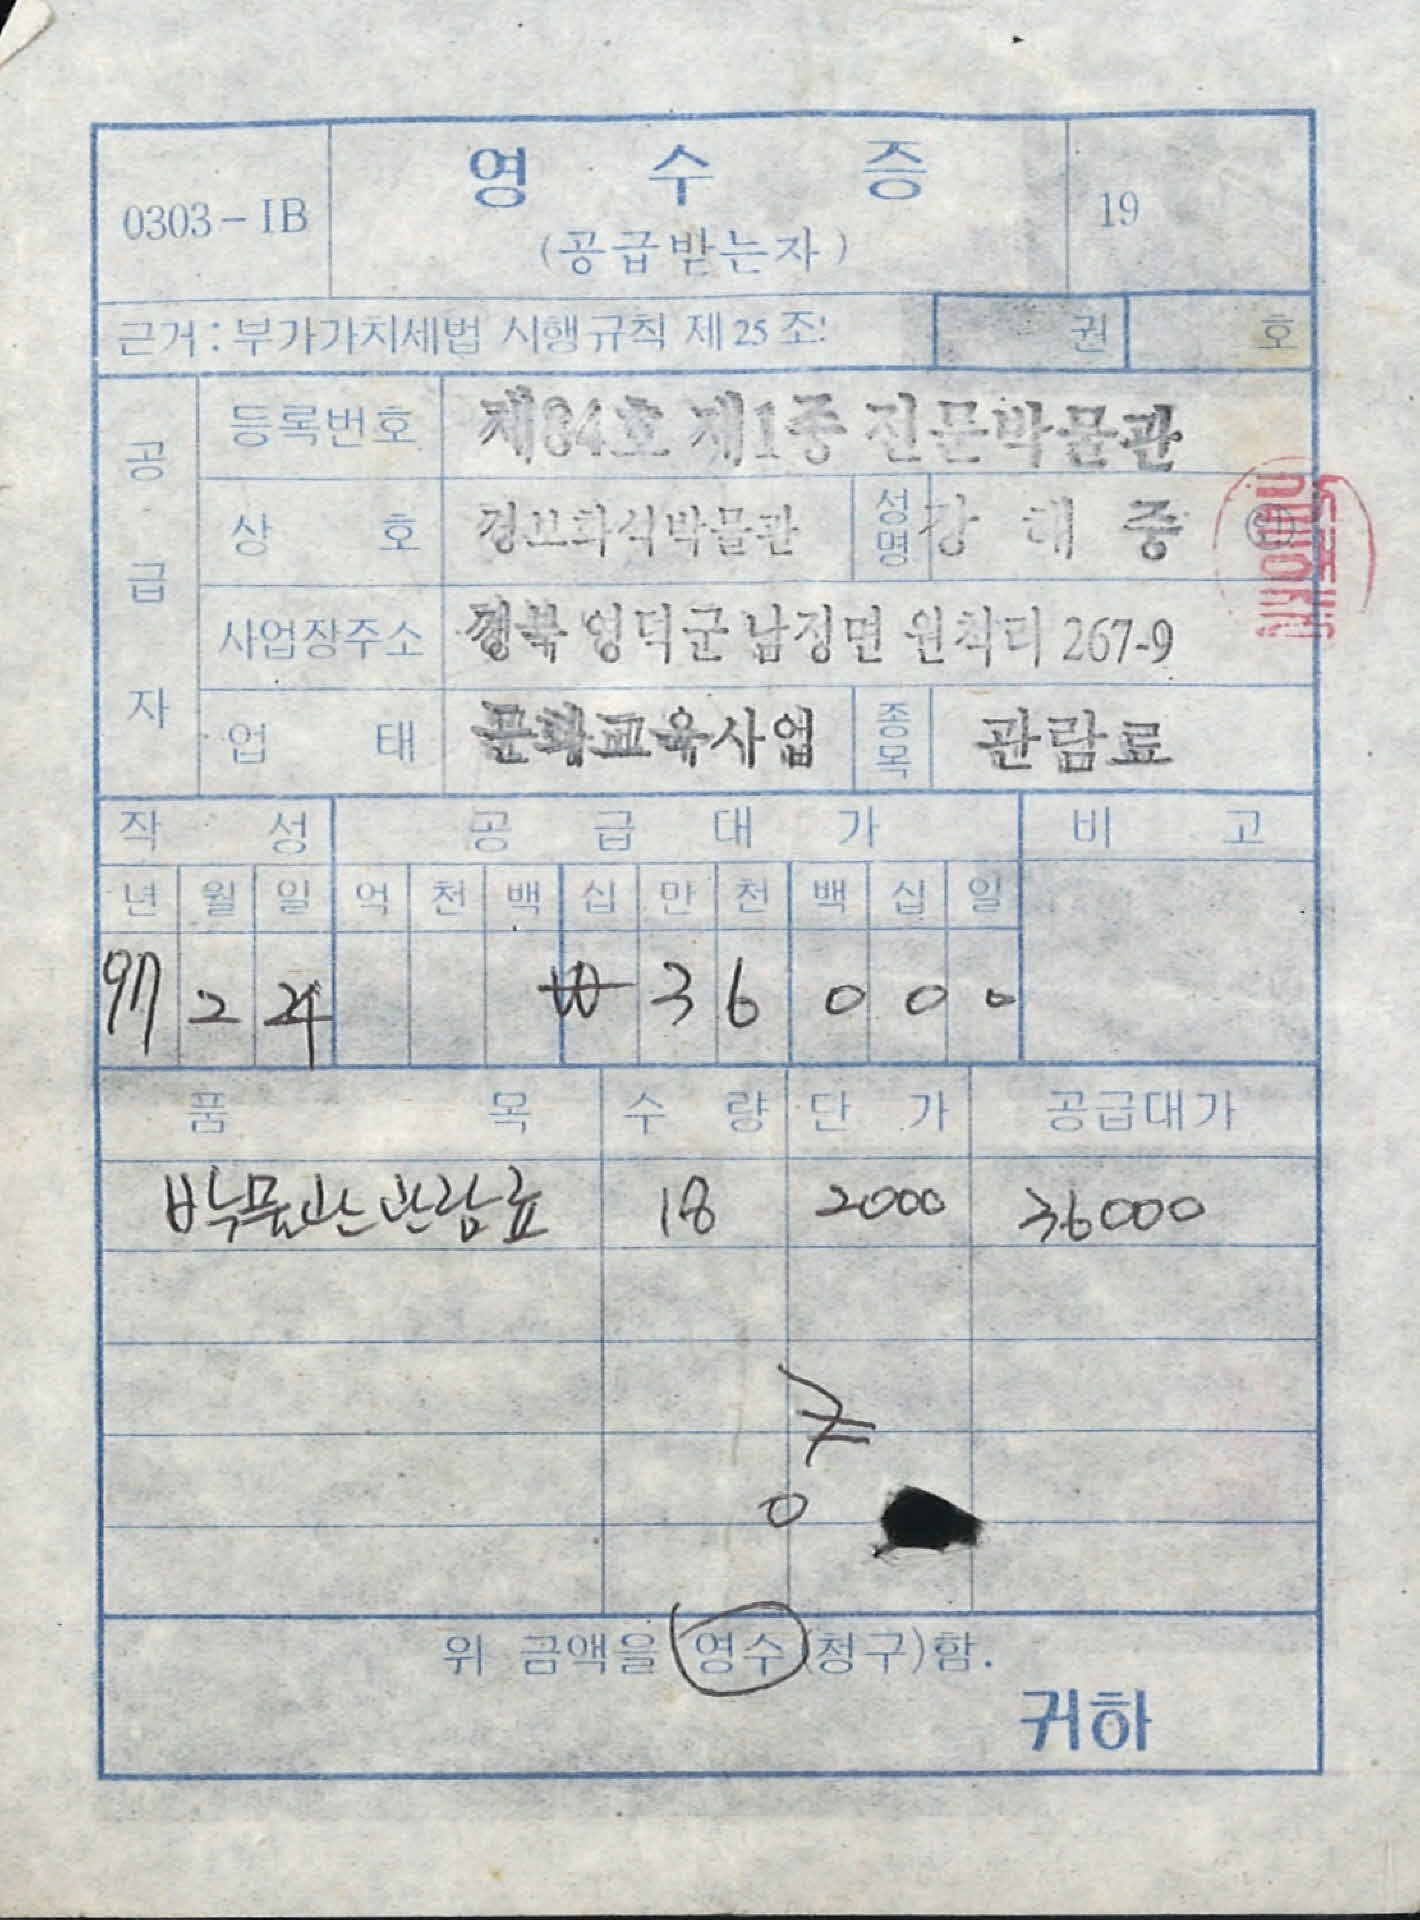 0303-IB
영 수 증
(공급받는자)
19
근거 : 부가가치세법 시행규칙 제25조
권
호
공급자
등록번호 제34호 제1종 전문박물관
상 호 경보화석박물관 성명 강 해 중
사업장주소 경북 영덕군 남정면 원척리 267-9
업 태 문화교육사업 종목 관람료
작 성 공 급 대 가 비 고
년 월 일 억 천 백 십 만 천 백 십 일
97 2 24 ₩ 3 6 0 0 0
품 목 수 량 단 가 공급대가
박물관관람료 18 2000 36000
위 금액을 영수(청구)함.
귀하